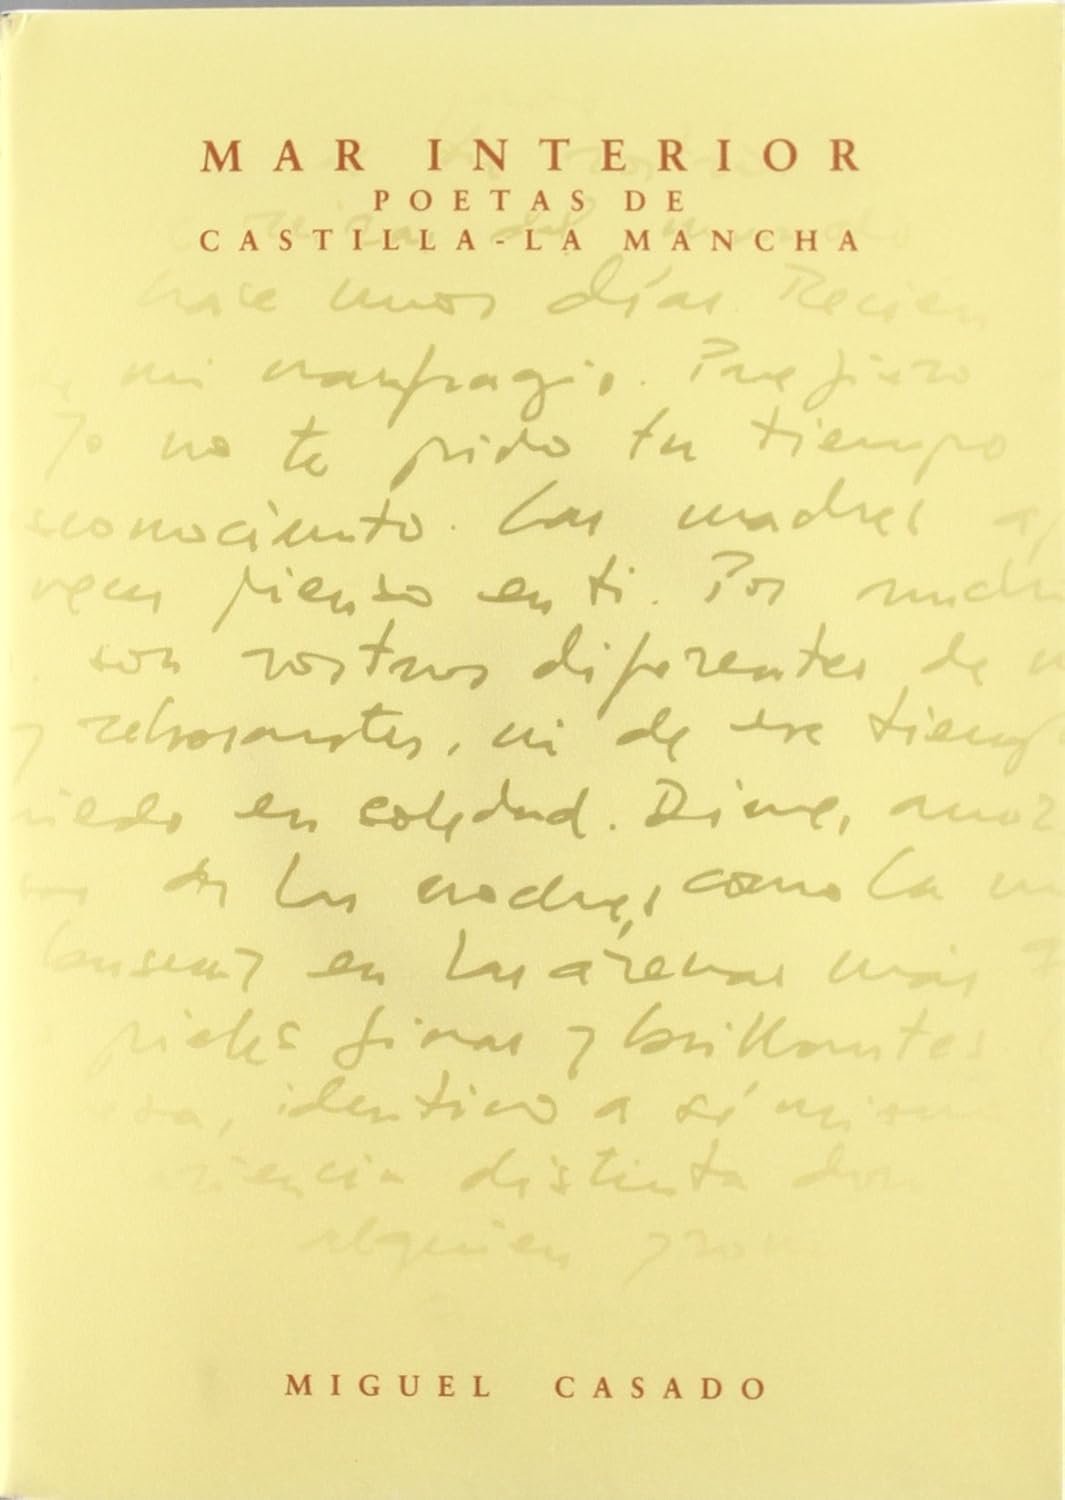 MAR INTERIOR
POETAS DE
CASTILLA-LA MANCHA
hace unos días. Recién
de mi naufragio. Prefiero
Yo no te pido tu tiempo
conocimiento. Las madres
veces pienso en ti. Por
son rostros diferentes de
y rebosantes, ni de ese tiemp
miedo en soledad. Dime, amor
de las madres, como la
en las arenas más
pieles finas y brillantes
idéntico a sí mismo
distinta
alguien
MIGUEL CASADO